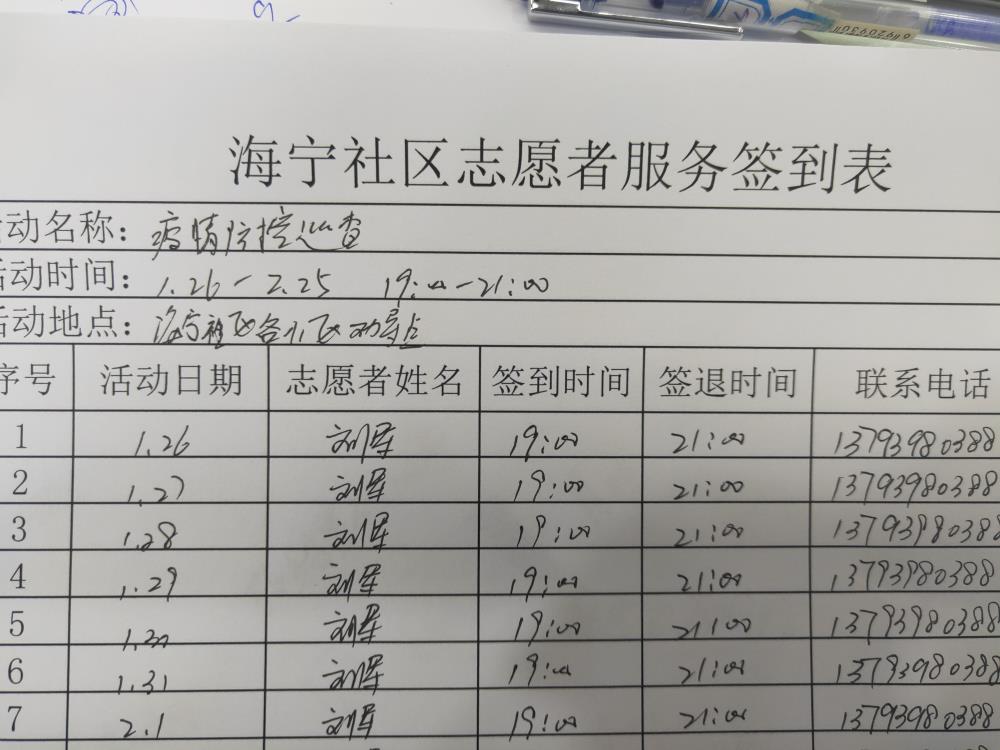 海宁社区志愿者服务签到表
活动名称：疫情防控巡查
活动时间：1.26-2.25 19:00-21:00
活动地点：海宁社区各小区劝导点
序号 活动日期 志愿者姓名 签到时间 签退时间 联系电话
1 1.26 刘军 19:00 21:00 13793980388
2 1.27 刘军 19:00 21:00 13793980388
3 1.28 刘军 19:00 21:00 13793980388
4 1.29 刘军 19:00 21:00 13793980388
5 1.30 刘军 19:00 21:00 13793980388
6 1.31 刘军 19:00 21:00 13793980388
7 2.1 刘军 19:00 21:00 13793980388